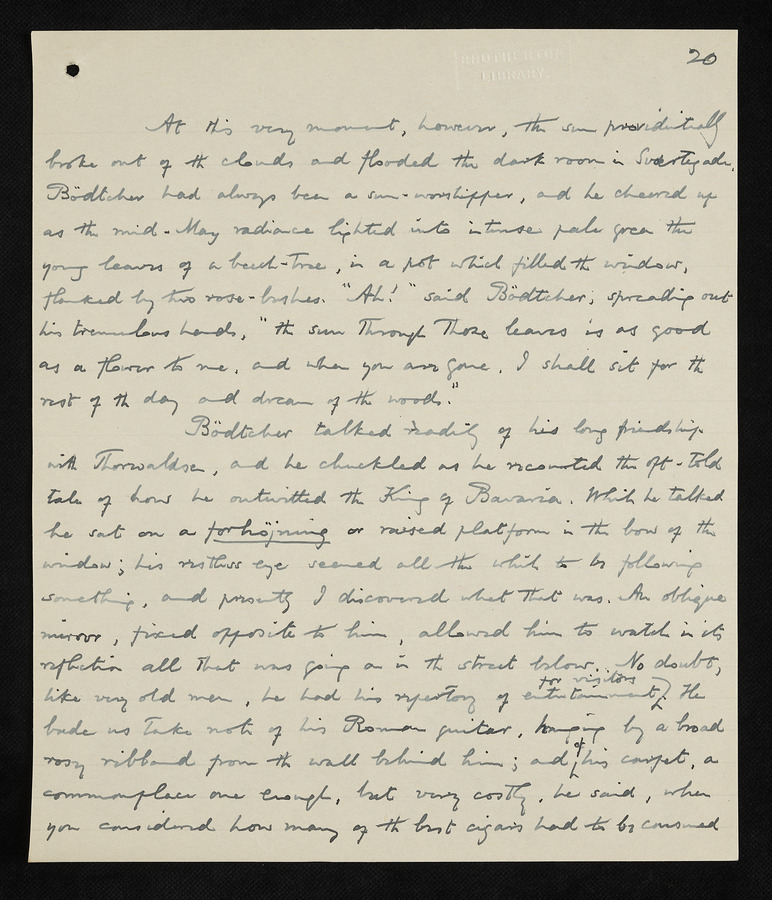 BROTHERTON
LIBRARY.
20
At this very moment, however, the sun providentially
broke out of the clouds and flooded the dark room in Svertegade.
Bödtcher had always been a sun-worshipper, and he cheered up
as the mid-May radiance lighted into intense pale green the
young leaves of a beech-tree, in a pot which filled the window,
flanked by two rose-bushes. "Ah!" said Bödtcher, spreading out
his tremulous hands, "the sun through those leaves is as good
as a flower to me, and when you are gone, I shall sit for the
rest of the day and dream of the woods."
Bödtcher talked readily of his long friendship
with Thorwaldsen, and he chuckled as he recounted the oft-told
tale of how he outwitted the King of Bavaria. While he talked
he sat on a forhöjning or raised platform in the bow of the
window; his restless eye seemed all the while to be following
something, and presently I discovered what that was. An oblique
mirror, fixed opposite to him, allowed him to watch in its
reflection all that was going on in the street below. No doubt,
like very old men, he had his repertory of entertainment for visitors. He
bade us take note of his Roman guitar, hanging by a broad
rosy ribband from the wall behind him; and of his carpet, a
commonplace one enough, but very costly, he said, when
you considered how many of the best cigars had to be consumed